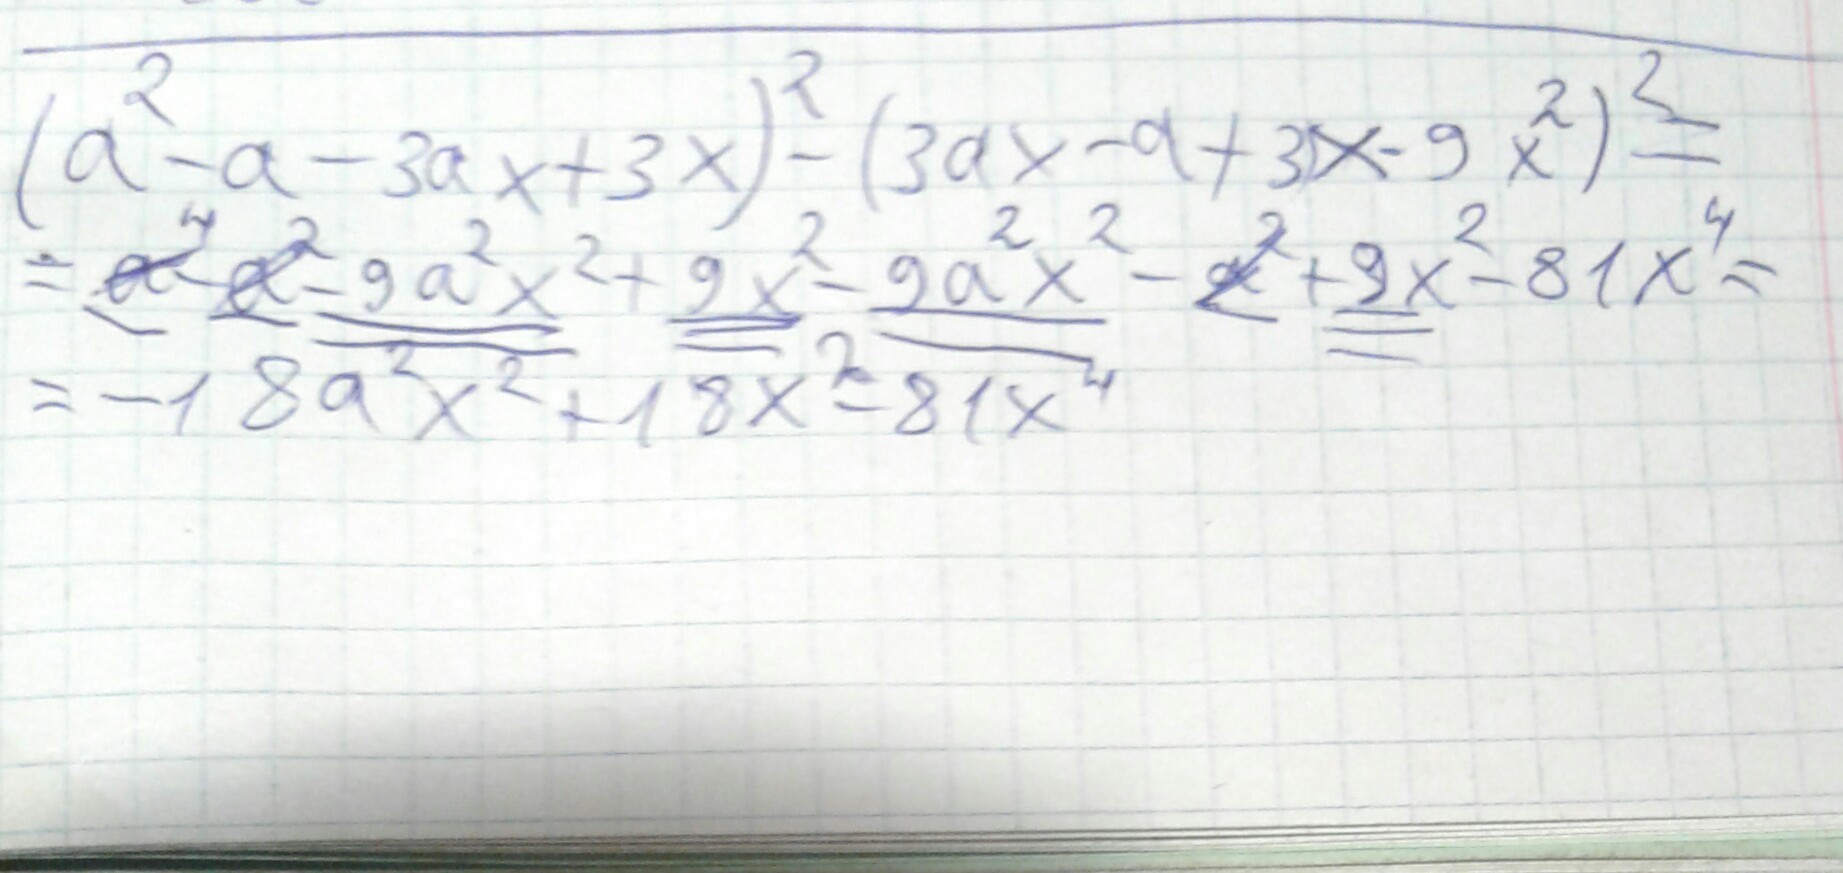 (a² - a - 3ax + 3x)² - (3ax - a + 3x - 9x²)² =
= a⁴ - a² - 9a²x² + 9x² - 9a²x² - a² + 9x² - 81x⁴ =
= -18a²x² + 18x² - 81x⁴